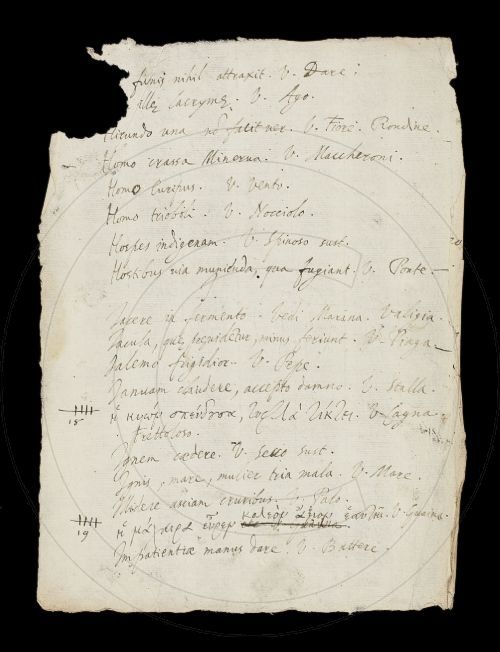 funis nihil attraxit. V. Dare.
illę lacrymę. V. Ago.
Hirundo una nō facit ver. V. Fiore. Rondine.
Homo crassa Minerva. V. Maccheroni.
Homo V. Vento.
Homo trioboli. V. Nocciolo.
Hospes indigenam. V. Spinoso sust.
Hostibus via munienda, qua fugiant. V. Ponte.
Jacere in fermento. Vedi Marina. Valigia.
Jacula, quę providetur, minus feriunt. V. Piaga.
Jalemo frigidior. V. Pepe.
Januam claudere, accepto damno. V. Stalla.
ἡ κυων σπεύδουσα, τυφλὰ τίκτει. V. Cagna
15
frettolosa.
Ignem cædere. V. Secco sust.
Ignis, mare, mulier tria mala. V. Mare.
Illidere cruribus. V. Palo.
ἡ εὗρεν ἄξιον ἑαυτῆς. V.
19
Impatientiæ manus dare. V. Battere.